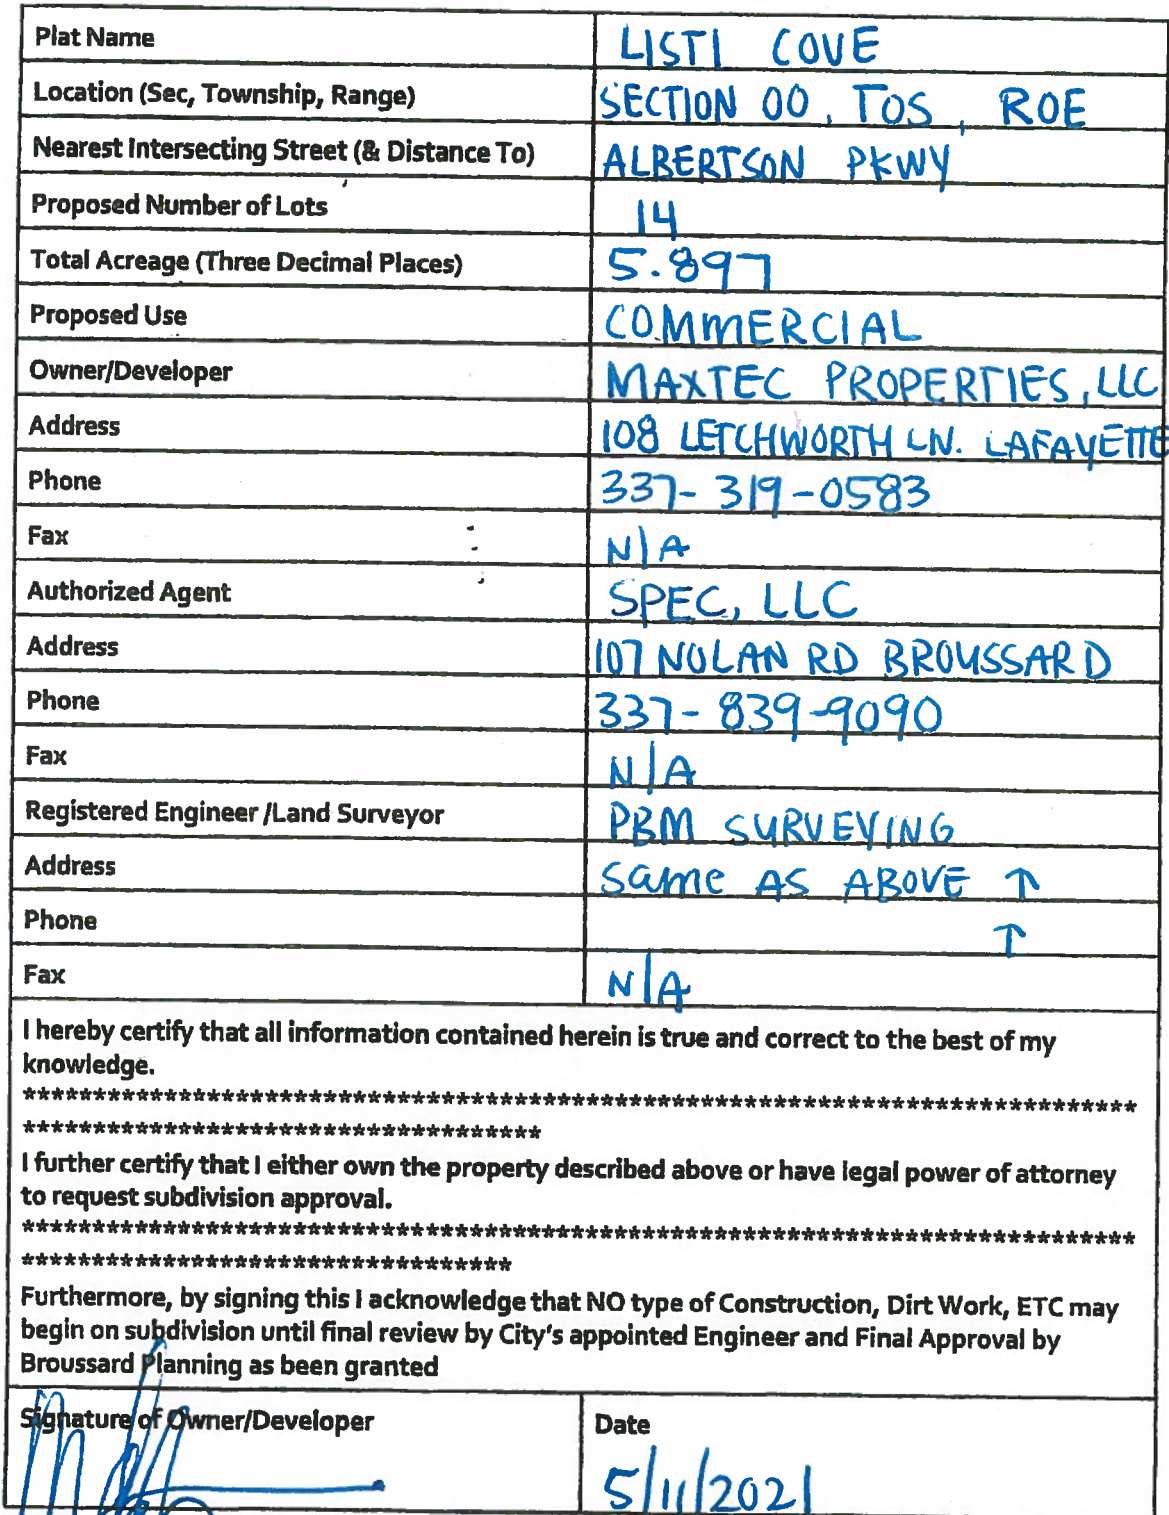 Plat Name LISTI COVE
Location (Sec, Township, Range) SECTION 00, TOS, ROE
Nearest Intersecting Street (& Distance To) ALBERTSON PKWY
Proposed Number of Lots 14
Total Acreage (Three Decimal Places) 5.897
Proposed Use COMMERCIAL
Owner/Developer MAXTEC PROPERTIES, LLC
Address 108 LETCHWORTH LN. LAFAYETTE
Phone 337-319-0583
Fax N/A
Authorized Agent SPEC, LLC
Address 107 NOLAN RD BROUSSARD
Phone 337-839-9090
Fax N/A
Registered Engineer /Land Surveyor PBM SURVEYING
Address same AS ABOVE ↑
Phone ↑
Fax N/A
I hereby certify that all information contained herein is true and correct to the best of my
knowledge.
*******************************************************************************
*************************************
I further certify that I either own the property described above or have legal power of attorney
to request subdivision approval.
*******************************************************************************
***********************************
Furthermore, by signing this I acknowledge that NO type of Construction, Dirt Work, ETC may
begin on subdivision until final review by City's appointed Engineer and Final Approval by
Broussard Planning as been granted
Signature of Owner/Developer Date
5/11/2021